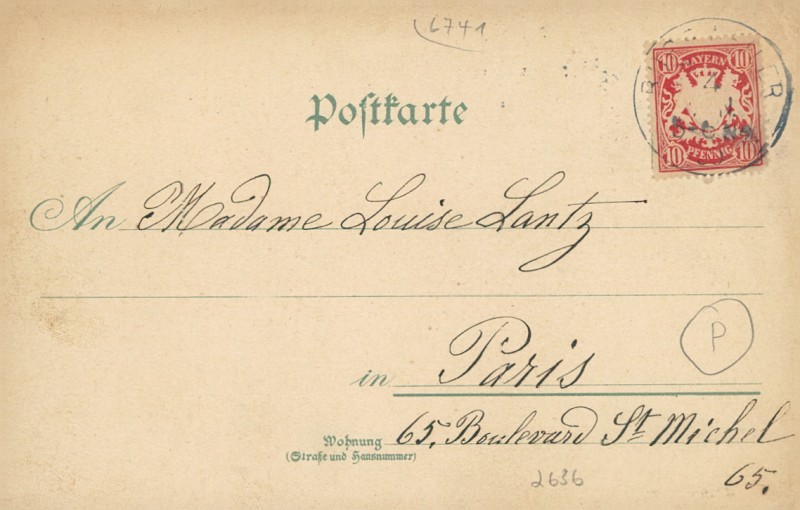 6741
10 BAYERN 10
10 PFENNIG 10
Postkarte
An Madame Louise Lantz
P
in Paris
Wohnung 65, Boulevard St Michel
(Straße und Hausnummer)
65.
2636